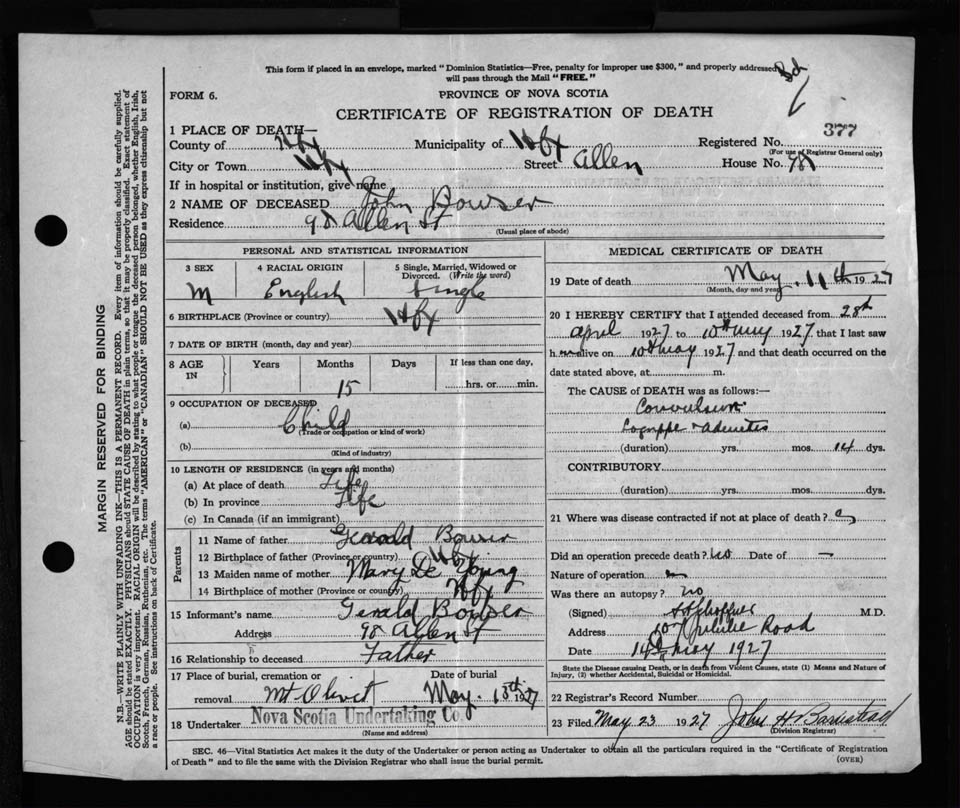 This form if placed in an envelope, marked "Dominion Statistics—Free, penalty for improper use $300," and properly addressed,
will pass through the Mail "FREE."
FORM 6.
PROVINCE OF NOVA SCOTIA
CERTIFICATE OF REGISTRATION OF DEATH
377
1 PLACE OF DEATH—
County of Hfx Municipality of Hfx Registered No.
(For use of Registrar General only)
City or Town Hfx Street Allen House No. 98
If in hospital or institution, give name
2 NAME OF DECEASED John Bowser
Residence 98 Allen St
(Usual place of abode)
PERSONAL AND STATISTICAL INFORMATION
3 SEX M
4 RACIAL ORIGIN English
5 Single, Married, Widowed or Divorced. (Write the word) Single
6 BIRTHPLACE (Province or country) Hfx
7 DATE OF BIRTH (month, day and year)
8 AGE IN
Years Months Days If less than one day,
15 hrs. or min.
9 OCCUPATION OF DECEASED
(a) Child
(Trade or occupation or kind of work)
(b)
(Kind of industry)
10 LENGTH OF RESIDENCE (in years and months)
(a) At place of death Life
(b) In province Life
(c) In Canada (if an immigrant)
Parents
11 Name of father Gerald Bowser
12 Birthplace of father (Province or country) Hfx
13 Maiden name of mother Mary De Young
14 Birthplace of mother (Province or country) Hfx
15 Informant's name Gerald Bowser
Address 98 Allen St
16 Relationship to deceased Father
17 Place of burial, cremation or removal Mt Olivet
Date of burial May 13th 1927
18 Undertaker Nova Scotia Undertaking Co
(Name and address)
MEDICAL CERTIFICATE OF DEATH
19 Date of death May 11th 1927
(Month, day and year)
20 I HEREBY CERTIFY that I attended deceased from 28th
April 1927 to 10th May 1927 that I last saw
him alive on 10th May 1927 and that death occurred on the
date stated above, at m.
The CAUSE of DEATH was as follows:—
Convulsions
Lagrippe
(duration) yrs. mos. 14 dys.
CONTRIBUTORY
(duration) yrs. mos. dys.
21 Where was disease contracted if not at place of death?
Did an operation precede death? No Date of —
Nature of operation
Was there an autopsy? no
(Signed) M.D.
Address Road
Date 14th May 1927
State the Disease causing Death, or in death from Violent Causes, state (1) Means and Nature of
Injury, (2) whether Accidental, Suicidal or Homicidal.
22 Registrar's Record Number
23 Filed May 23 1927 John H Barnstead
(Division Registrar)
SEC. 46—Vital Statistics Act makes it the duty of the Undertaker or person acting as Undertaker to obtain all the particulars required in the "Certificate of Registration
of Death" and to file the same with the Division Registrar who shall issue the burial permit.
(OVER)
MARGIN RESERVED FOR BINDING
N.B.—WRITE PLAINLY WITH UNFADING INK—THIS IS A PERMANENT RECORD. Every item of information should be carefully supplied.
AGE should be stated EXACTLY. PHYSICIANS should STATE CAUSE OF DEATH in plain terms, so that it may be properly classified. Exact statement of
OCCUPATION is very important. RACIAL ORIGIN will be described by stating to what people or tongue the deceased person belonged, whether English, Irish,
Scotch, French, German, Russian, Ruthenian, etc. The terms "AMERICAN" or "CANADIAN" SHOULD NOT BE USED as they express citizenship but not
a race or people. See instructions on back of Certificate.